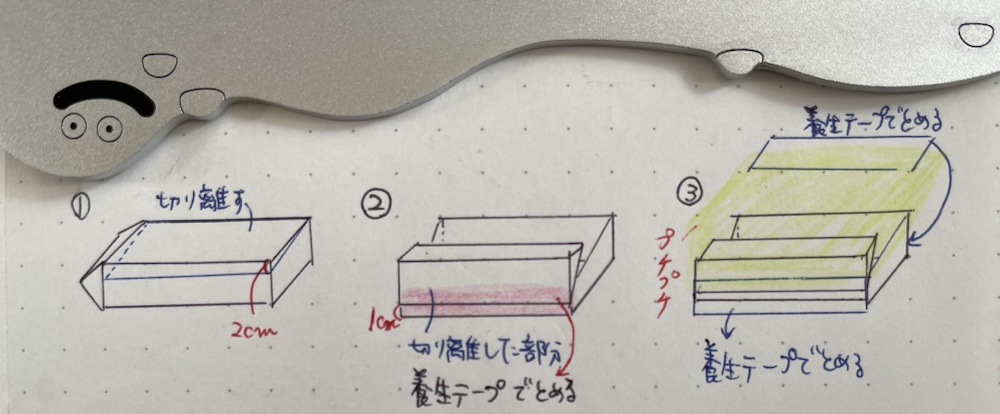 ①
切り離す
2cm
②
1cm
切り離した部分
養生テープでとめる
③
養生テープでとめる
プチプチ
養生テープでとめる